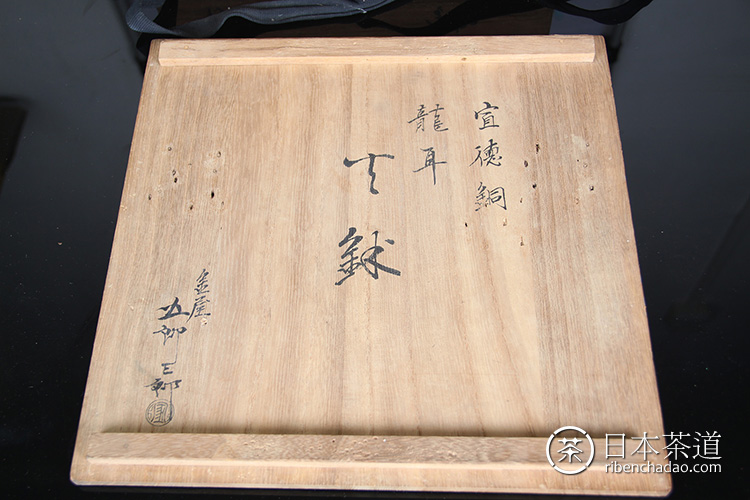 宣徳銅
龍耳
火鉢
金屋
五郎三郎
日本茶道
ribenchadao.com